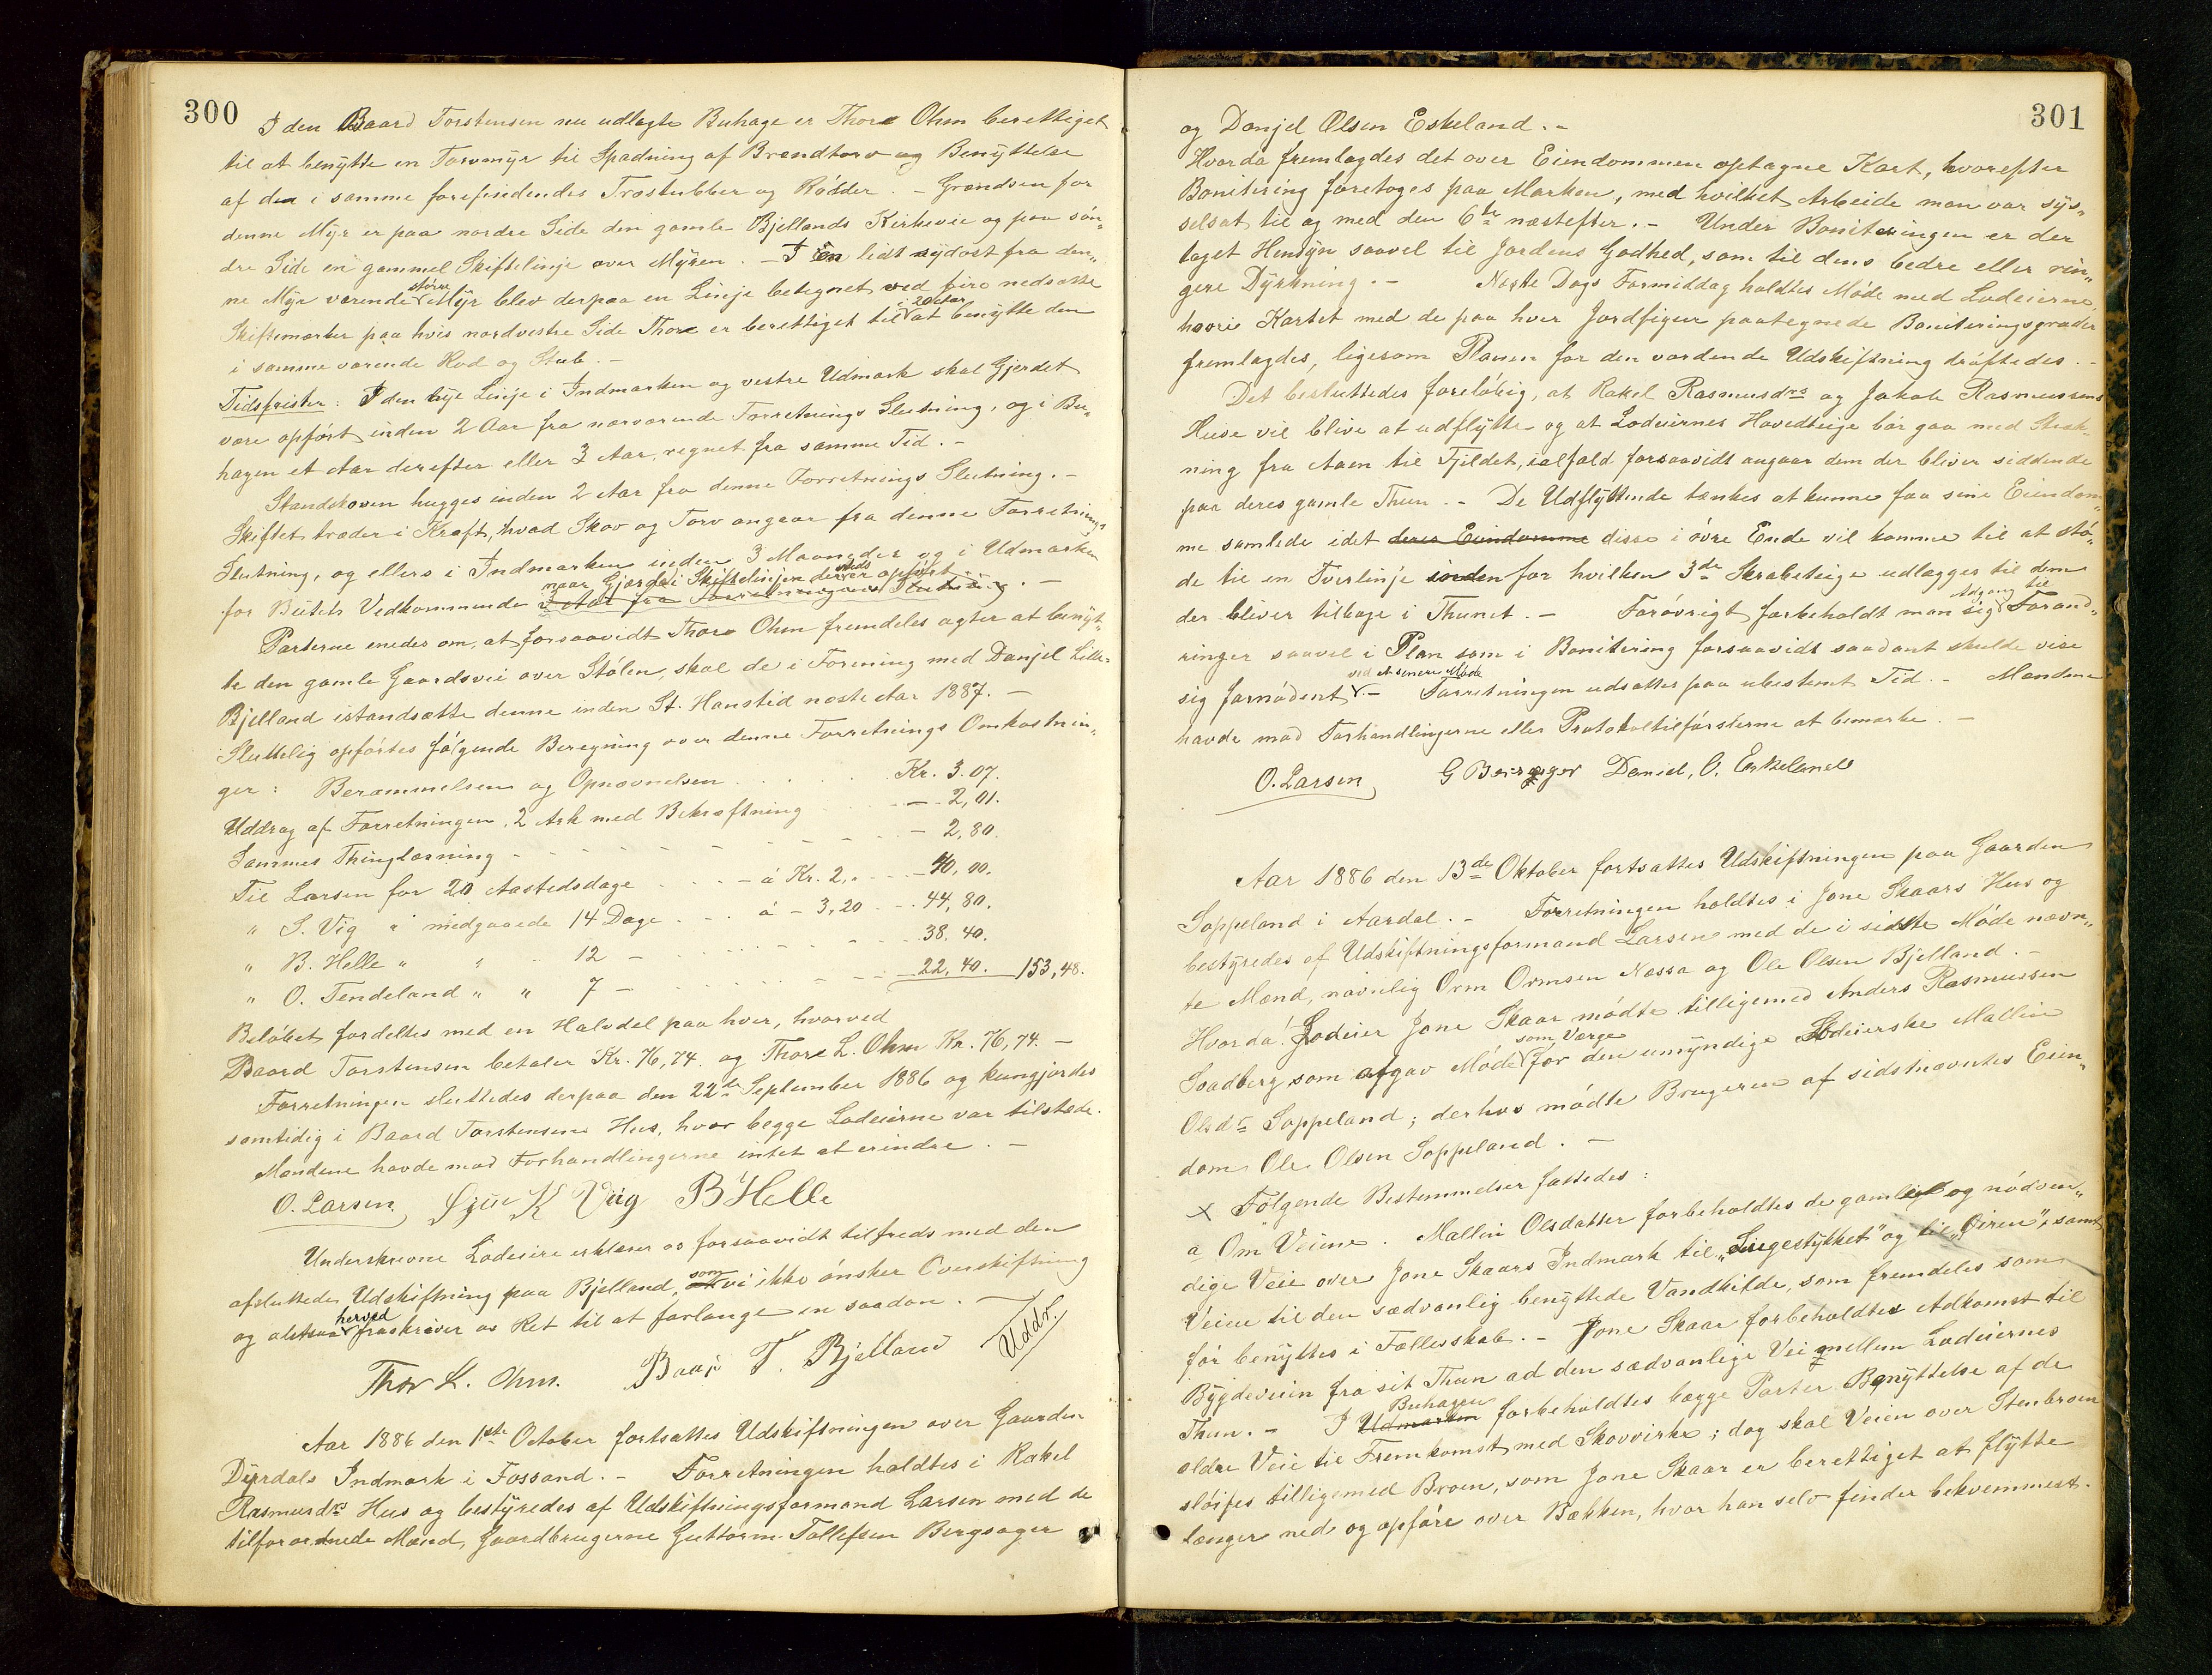 300
I den Baard Torstensen nu udlagte Buhage er Thore Ohm berettiget
til at benÿtte en Torvmÿr til Spadning af Brendtorv og Benÿttelse
af den i samme forefindendes Træstubber og Rødder. - Grændsen for
denne Mÿr er paa nordre Side den gamle Bjellands Kirkevei og paa søn„
dre Side en gammel Skiftelinje over Mÿren. - I en lidt sydost fra den„
ne Mÿr værende større Mÿr blev derpaa en Linje betegnet ved fire nedsatte
Skiftemærker paa hvis nordvestre Side Thore er berettiget til i 20 Aar at benÿtte den
i samme værende Rod og Stub. -
Tidsfrister: I den nye Linje i Indmarken og vestre Udmark skal Gjerdet
være opført inden 2 Aar fra nærværende Forretnings Slutning, og i Bu„
hagen et Aar derefter eller 3 Aar, regnet fra samme Tid. -
Standskoven hugges inden 2 Aar fra denne Forretnings Slutning. -
Skiftet træder i Kraft, hvad Skov og Torv angaar fra denne Forretnings
Slutning, og ellers i Indmarken inden 3 Maaneder og i Udmarken
for Beitets Vedkommende naar Gjærde i Skiftelinjen dersteds er opført. 2 Aar fra Forretningens Slutning. -
Parterne enedes om, at forsaavidt Thore Ohm fremdeles agter at benÿt„
te den gamle Gaardsvei over Stølen, skal de i Forening med Danjel Lille„
Bjelland istandsætte denne inden St. Hanstid næste Aar 1887. -
Sluttelig opførtes følgende Beregning over denne Forretnings Omkostnin„
ger: Berammelsen og Opnævnelsen . . . Kr. 3.07.
Uddrag af Forretningen, 2 Ark med Bekræftning . . . - 2,01.
Sammes Thinglæsning - - - - - - - 2,80.
Til Larsen for 20 Aastedsdage . . . - á Kr. 2, . . - 40,00.
" S. Vig " medgaaede 14 Dage . . . á - 3,20 - - 44,80.
" B. Helle " " 12 - . . . 38.40.
" O. Tendeland " " 7 - . . . 22,40. 153,48.
Beløbet fordeltes med en Halvdel paa hver, hvorved
Baard Torstensen betaler Kr. 76,74. og Thore L. Ohm Kr. 76,74. -
Forretningen sluttedes derpaa den 22de September 1886 og kungjordes
samtidig i Baard Torstensens Hus, hvor begge Lodeierne var tilstede.
Mændene havde mod Forhandlingerne intet at erindre. -
O. Larsen. Sjur K Viig B Helle
Underskrevne Lodeiere erklærer os forsaavidt tilfreds med den
afsluttede Udskiftning paa Bjelland, som vi ikke ønsker Overskiftning
og altsaa herved fraskriver os Ret til at forlange en saadan. -
Thor L. Ohm. Baar T. Bjelland Uddr.
Aar 1886 den 1ste October fortsattes Udskiftningen over Gaarden
Dÿrdals Indmark i Fossand. - Forretningen holdtes i Rakel
Rasmusdrs Hus og bestÿredes af Udskiftningsformand Larsen med de
tilforordnede Mænd, Gaardbrugerne Guttorm Tollefsen Bergsager
301
og Danjel Olsen Eskeland. -
Hvorda fremlagdes det over Eiendommen optagne Kart, hvorefter
Bonitering foretoges paa Marken, med hvilket Arbeide man var sÿs„
selsat til og med den 6te næstefter. - Under Boniteringen er der
taget Hensÿn saavel til Jordens Godhed, som til dens bedre eller rin„
gere Dÿrkning. - Næste Dags Formiddag holdtes Møde med Lodeierne,
hvori Kartet med de paa hver Jordfigur paategnede Boniteringsgrader
fremlagdes, ligesom Planen for den vordende Udskiftning drøftedes. -
Det besluttedes foreløbig, at Rakel Rasmusdrs og Jakob Rasmussens
Huse vil blive at udflÿtte og at Lodeiernes Hovedteige bør gaa med Stræk„
ning fra Aaen til Fjeldet, ialfald forsaavidt angaar dem der bliver siddende
paa deres gamle Thun. - De Udflÿttende tænkes at kunne faa sine Eiendom„
me samlede idet deres Eiendomme disse i øvre Ende vil komme til at stø„
de til en Tverlinje indenfor hvilken 3de Skrabeteige udlægges til dem
der bliver tilbage i Thunet. - Forøvrigt forbeholdt man sig Adgang til Forand„
ringer saavel i Plan som i Bonitering forsaavidt saadant skulde vise
sig fornødent ved et senere Møde. - Forretningen udsattes paa ubestemt Tid. - Mændene
havde mod Forhandlingerne eller Protokoltilførslerne at bemærke. -
O. Larsen G Bergsager Daniel, O. Eskeland
Aar 1886 den 13de Oktober fortsattes Udskiftningen paa Gaarden
Soppeland i Aardal. - Forretningen holdtes i Jone Skaars Hus og
bestÿredes af Udskiftningsformand Larsen med de i sidste Møde nævn„
te Mænd, navnlig Orm Ormsen Næssa og Ole Olsen Bjelland. -
Hvorda! Lodeier Jone Skaar mødte tilligemed Anders Rasmussen
Svadberg som afgav Møde som Værge for den umÿndige Lodeierske Mallin
Olsdr Soppeland; derhos mødte Brugeren af sidstnævntes Eien„
dom Ole Olsen Soppeland. -
x Følgende Bestemmelser fattedes:
a Om Veiene. Mallin Olsdatter forbeholdtes de gamle og nødven„
dige Veie over Jone Skaars Indmark til „Lingestÿkket" og til „Giren", samt
Veien til den sædvanlig benÿttede Vandkilde, som fremdeles som
før benÿttes i Fællesskab. - Jone Skaar forbeholdtes Adkomst til
Bÿgdeveien fra sit Thun ad den sædvanlige Vei mellem Lodeiernes
Thun. - I Udmarken Buhagen forbeholdtes begge Parter Benÿttelse af de
ældre Veie til Fremkomst med Skovvirke; dog skal Veien over Stenbroen
sløifes tilligemed Broen, som Jone Skaar er berettiget at flÿtte
længer ned og opføre over Bækken, hvor han selv finder bekvemmest.